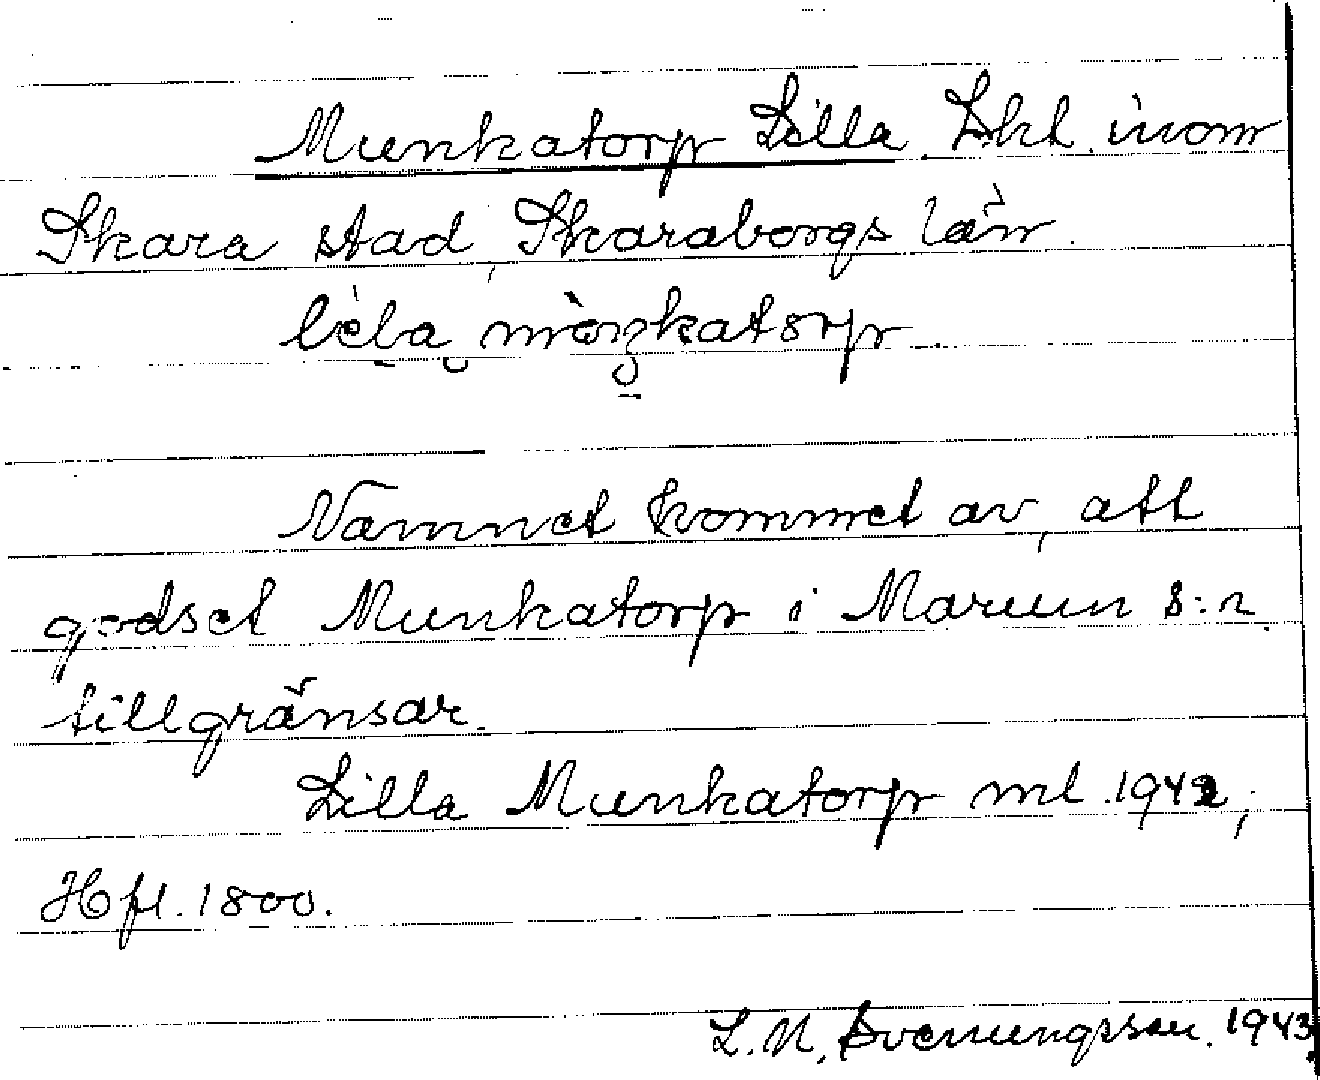 Munkatorp Lilla. Lht. inom
Skara stad, Skaraborgs län.
lìla mòŋkatorp.
Namnet kommet av, att
godset Munkatorp i Marum s:n
tillgränsar.
Lilla Munkatorp ml. 1942,
Hfl. 1800.
L. N. Svenungsson. 1943.